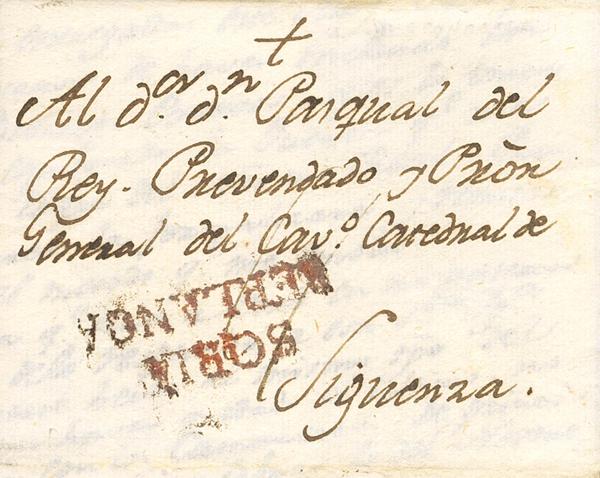 +
Al d.or d.n Pasqual del
Rey. Prevendado y Prõn
General del Cav.o Catedral de
SORIA
Siguenza.